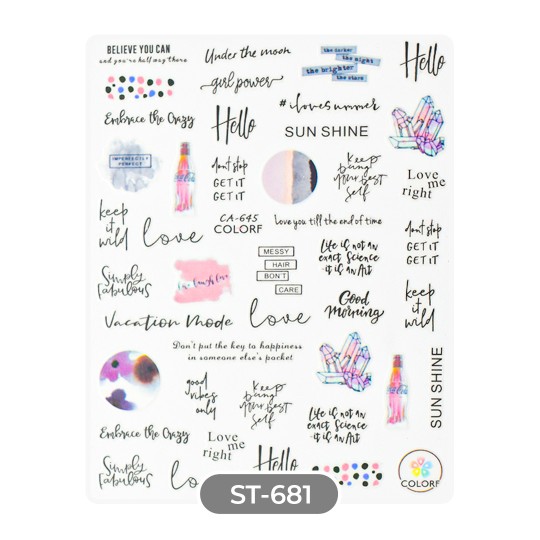 BELIEVE YOU CAN
and you're half way there
Under the moon
the darker
the night
the brighter
the stars
Hello
girl power
Embrace the Crazy
Hello
#ilovesummer
SUN SHINE
IMPERFECTLY
PERFECT
don't stop
GET IT
GET IT
Keep
being
your best
self
Love
me
right
keep
it
wild
love
CA-645
COLORF
Love you till the end of time
Life is not an
exact Science
it is an Art
don't stop
GET IT
GET IT
Simply
Fabulous
live laugh love
MESSY
HAIR
BON'T
CARE
Good
Morning
keep
it
wild
Vacation Mode
love
Don't put the key to happiness
in someone else's pocket
good
vibes
only
Keep
being
your best
self
Life is not an
exact Science
it is an Art
SUN SHINE
Embrace the Crazy
Love
me
right
Simply
Fabulous
lo
Hello
COLORF
ST-681